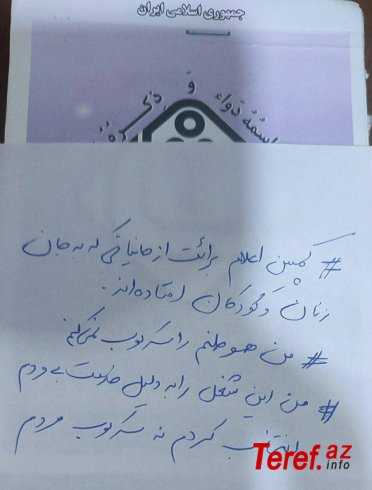 جمهوری اسلامی ایران
اسمُهُ دَواء وَ ذِکرُهُ
# کمپین اعلام برائت از جانیانی که به جان
زنان و کودکان افتاده‌اند.
# من هموطنم را سرکوب نمی‌کنم
# من این شغل را به دلیل خدمت به مردم
انتخاب کردم نه سرکوب مردم
Teref.az
info